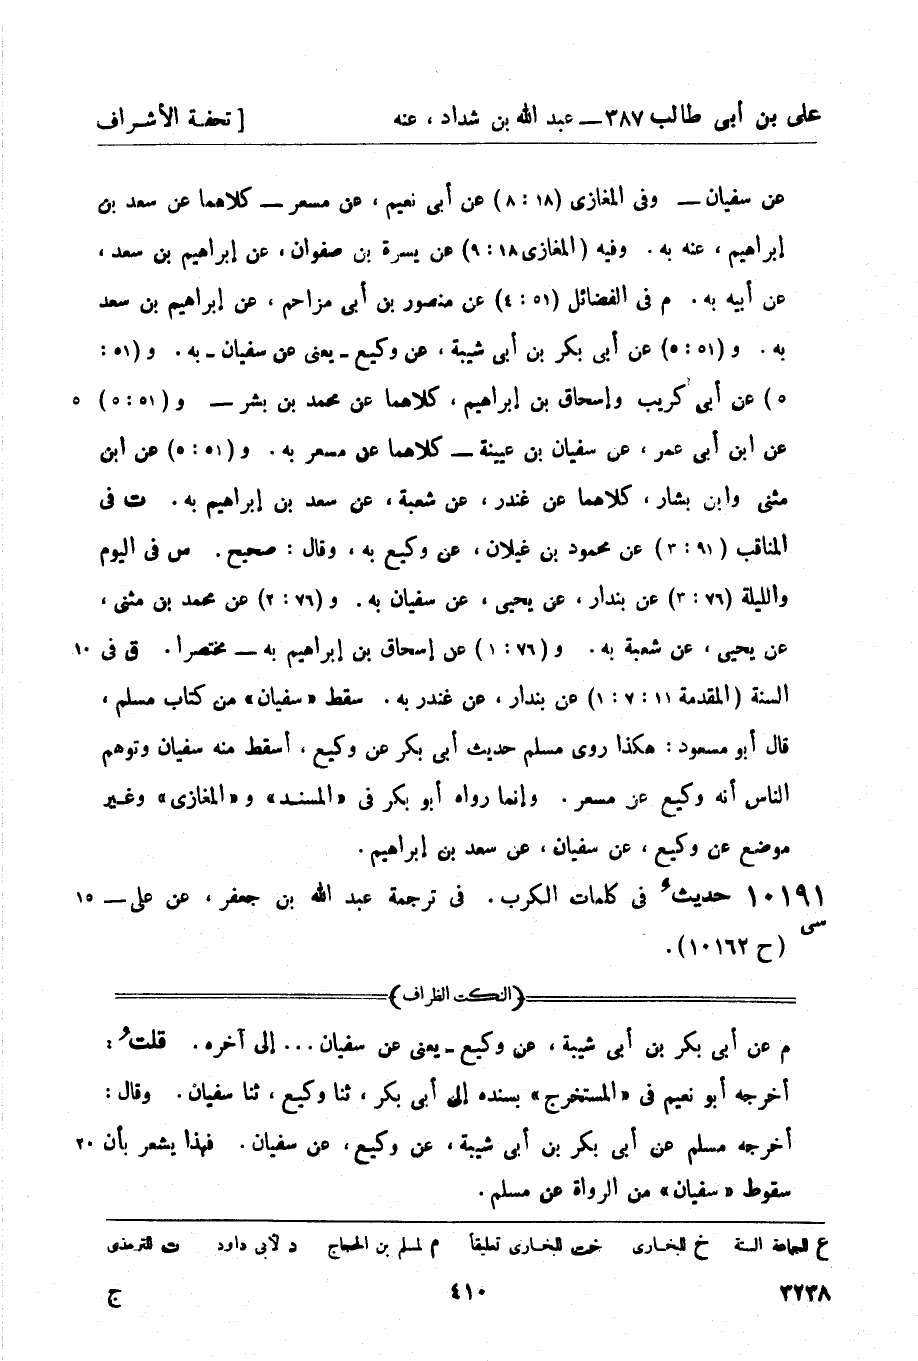 على بن أبى طالب ٣٨٧ — عبد الله بن شداد ، عنه [ تحفة الأشراف
عن سفيان — وفى المغازى (١٨ : ٨) عن أبى نعيم ، عن مسعر — كلاهما عن سعد بن
إبراهيم ، عنه به . وفيه ( المغازى ١٨ : ٩) عن يسرة بن صفوان ، عن إبراهيم بن سعد ،
عن أبيه به . م فى الفضائل (٥١ : ٤) عن منصور بن أبى مزاحم ، عن إبراهيم بن سعد
به . و (٥١ : ٥) عن أبى بكر بن أبى شيبة ، عن وكيع - يعنى عن سفيان - به . و (٥١ :
٥) عن أبى كريب وإسحاق بن إبراهيم ، كلاهما عن محمد بن بشر — و (٥١ : ٥) ٥
عن ابن أبى عمر ، عن سفيان بن عيينة — كلاهما عن مسعر به . و (٥١ : ٥) عن ابن
مثنى وابن بشار ، كلاهما عن غندر ، عن شعبة ، عن سعد بن إبراهيم به . ت فى
المناقب (٩١ : ٣) عن محمود بن غيلان ، عن وكيع به ، وقال : صحيح . س فى اليوم
والليلة (٧٦ : ٣) عن بندار ، عن يحيى ، عن سفيان به . و (٧٦ : ٢) عن محمد بن مثنى ،
عن يحيى ، عن شعبة به . و (٧٦ : ١) عن إسحاق بن إبراهيم به — مختصرا . ق فى ١٠
السنة (المقدمة ١١ : ٧ : ١) عن بندار ، عن غندر به . سقط « سفيان » من كتاب مسلم ،
قال أبو مسعود : هكذا روى مسلم حديث أبى بكر عن وكيع ، أسقط منه سفيان وتوهم
الناس أنه وكيع عن مسعر . وإنما رواه أبو بكر فى « المسند » و « المغازى » وغير
موضع عن وكيع ، عن سفيان ، عن سعد بن إبراهيم .
١٠١٩١ حديثُ فى كلمات الكرب . فى ترجمة عبد الله بن جعفر ، عن على — ١٥
سى
(ح ١٠١٦٢) .
(النكت الظراف)
م عن أبى بكر بن أبى شيبة ، عن وكيع - يعنى عن سفيان ... إلى آخره . قلتُ :
أخرجه أبو نعيم فى « المستخرج » بسنده إلى أبى بكر ، ثنا وكيع ، ثنا سفيان . وقال :
أخرجه مسلم عن أبى بكر بن أبى شيبة ، عن وكيع ، عن سفيان . فهذا يشعر بأن ٢٠
سقوط « سفيان » من الرواة عن مسلم .
ع للجماعة الستة خ للبخارى خت للبخارى تعليقاً م لمسلم بن الحجاج د لأبى داود ت للترمذى
٣٢٣٨ ٤١٠ ج